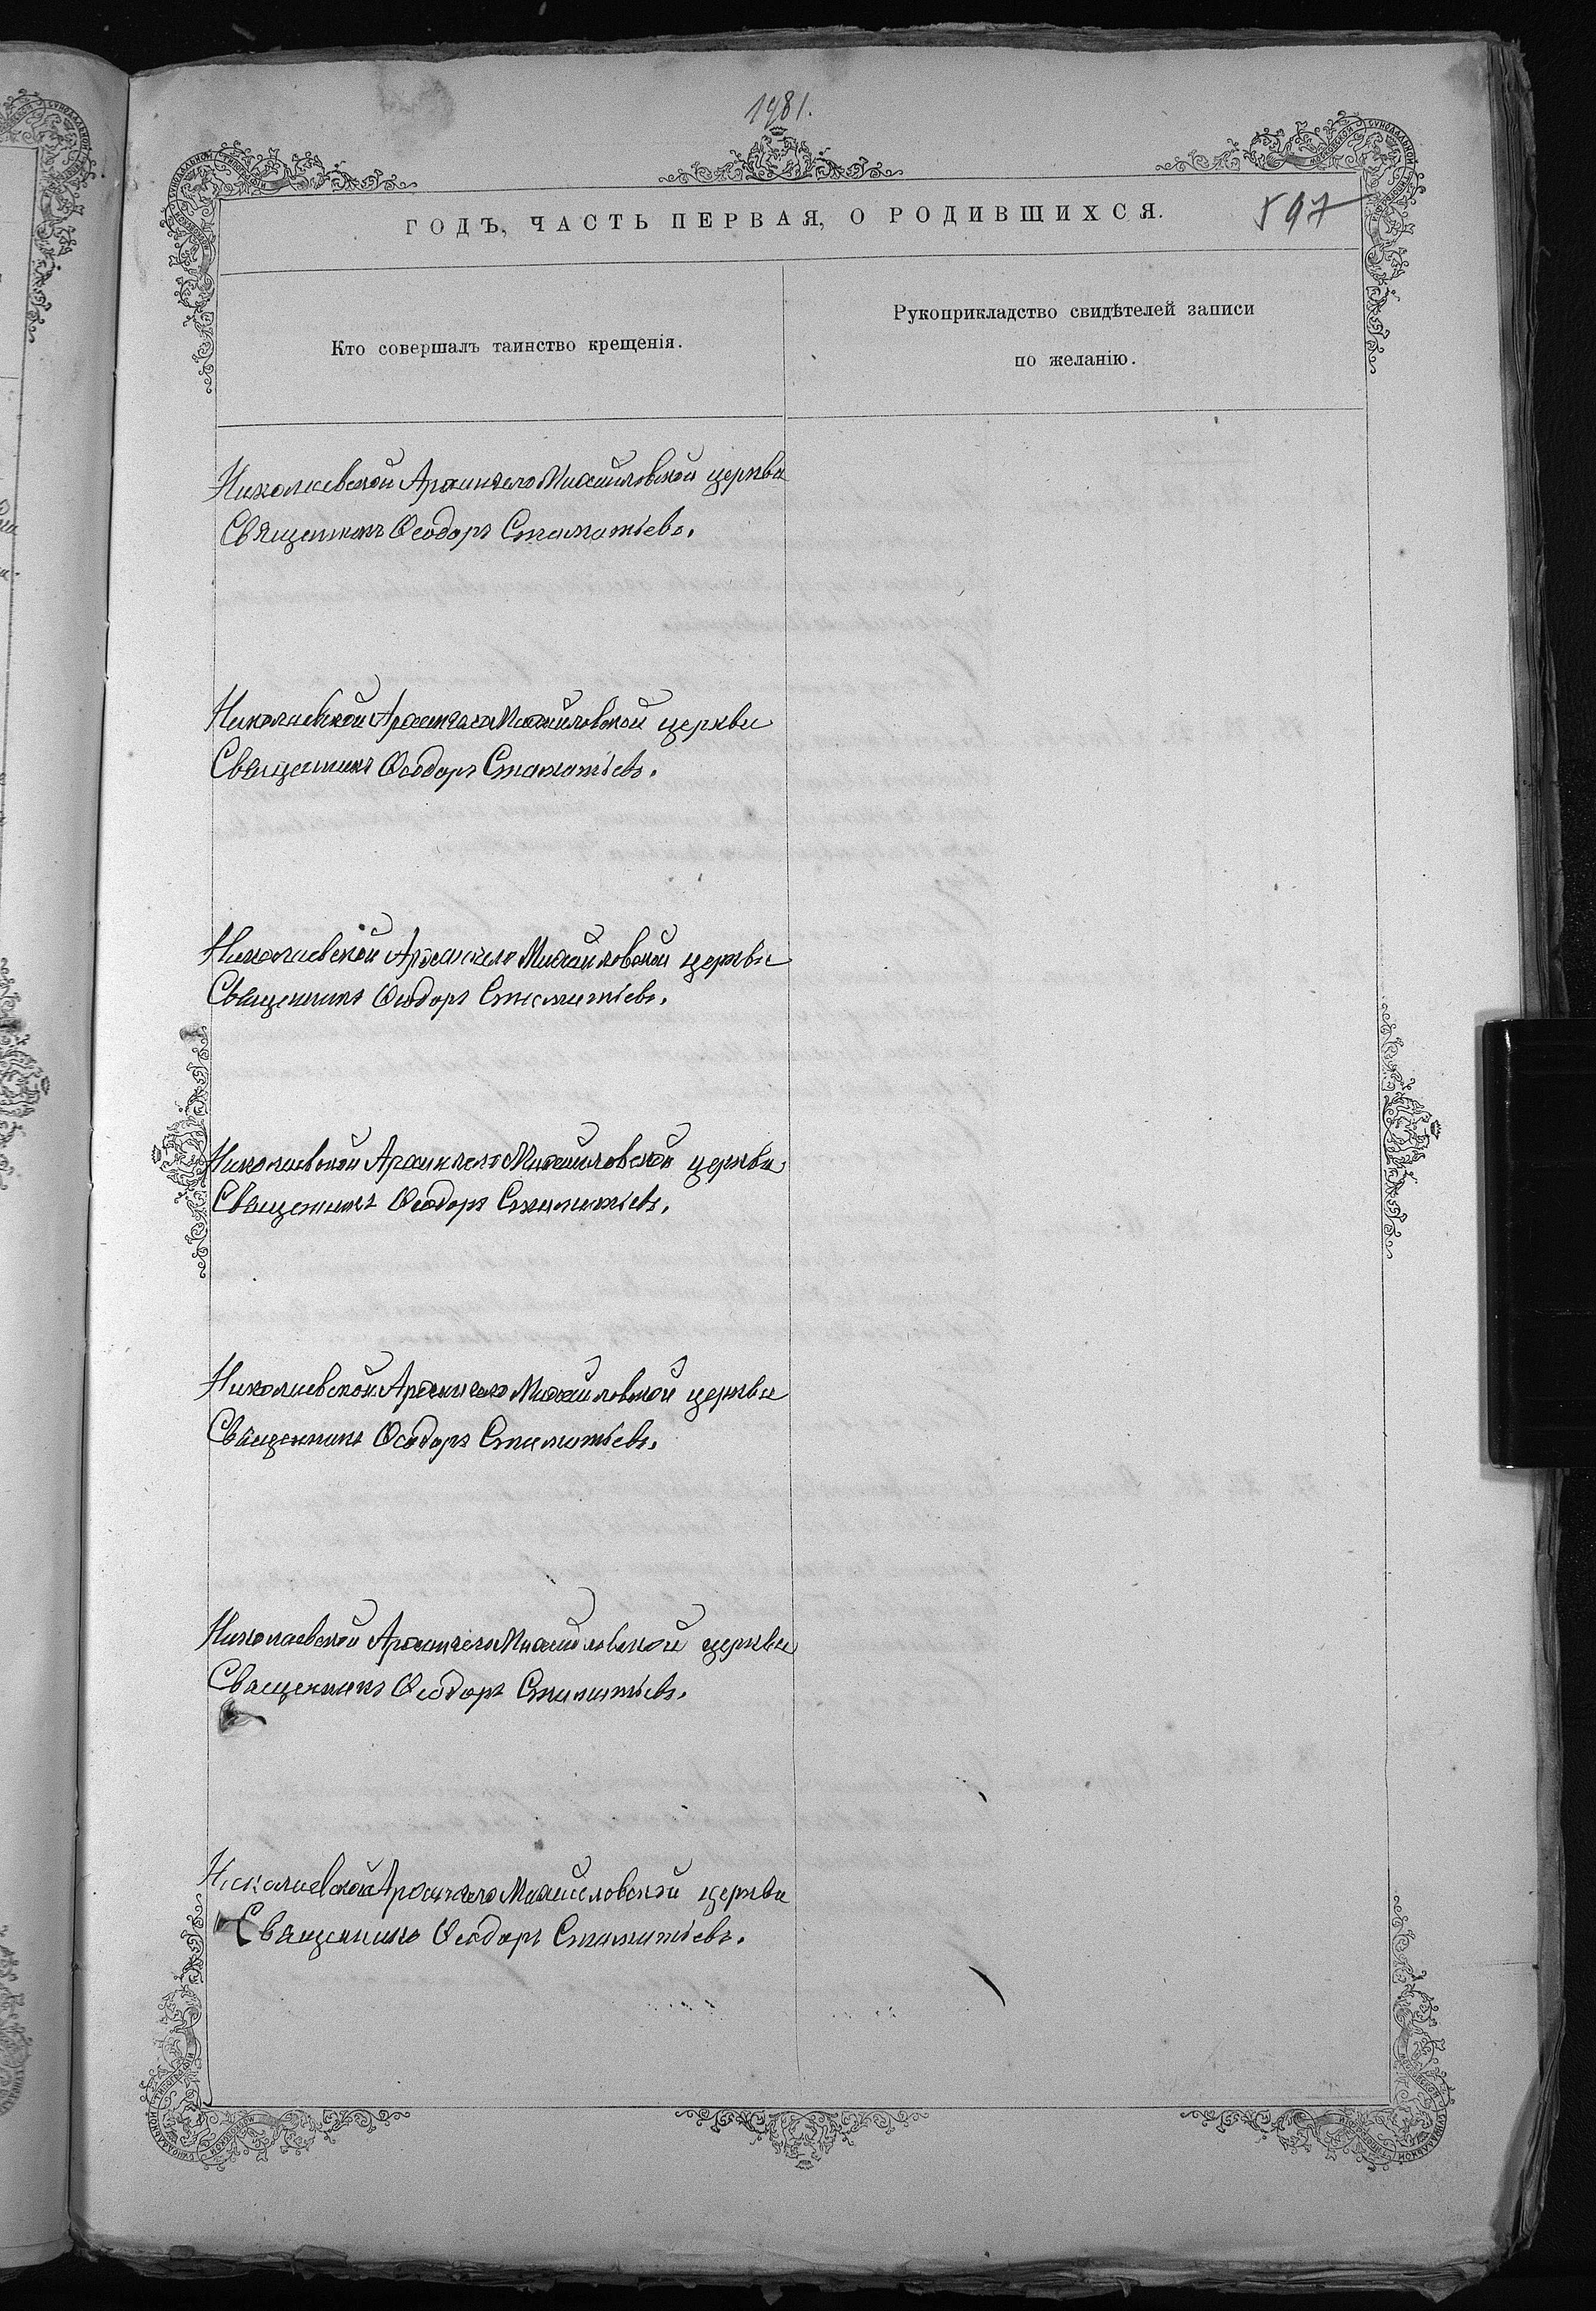 1981.
597
ГОДЪ, ЧАСТЬ ПЕРВАЯ, О РОДИВШИХСЯ.
Кто совершалъ таинство крещенія.
Рукоприкладство свидѣтелей записи
по желанію.
Николаевской Архангело Михайловской церкви
Священникъ Ѳеодоръ Стаматіевъ.
Николаевской Архангело Михайловской церкви
Священникъ Ѳеодоръ Стаматіевъ.
Николаевской Архангело Михайловской церкви
Священникъ Ѳеодоръ Стаматіевъ.
Николаевской Архангело Михайловской церкви
Священникъ Ѳеодоръ Стаматіевъ.
Николаевской Архангело Михайловской церкви
Священникъ Ѳеодоръ Стаматіевъ.
Николаевской Архангело Михайловской церкви
Священникъ Ѳеодоръ Стаматіевъ.
Николаевской Архангело Михайловской церкви
Священникъ Ѳеодоръ Стаматіевъ.